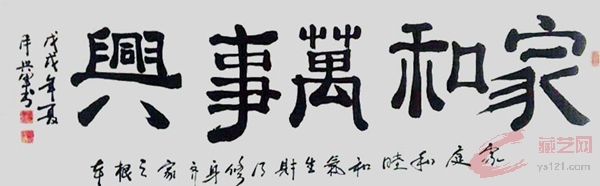 家和萬事興
家庭和睦和氣生財乃修身齐家之根本
戊戌年夏
藏艺网
ys121.com